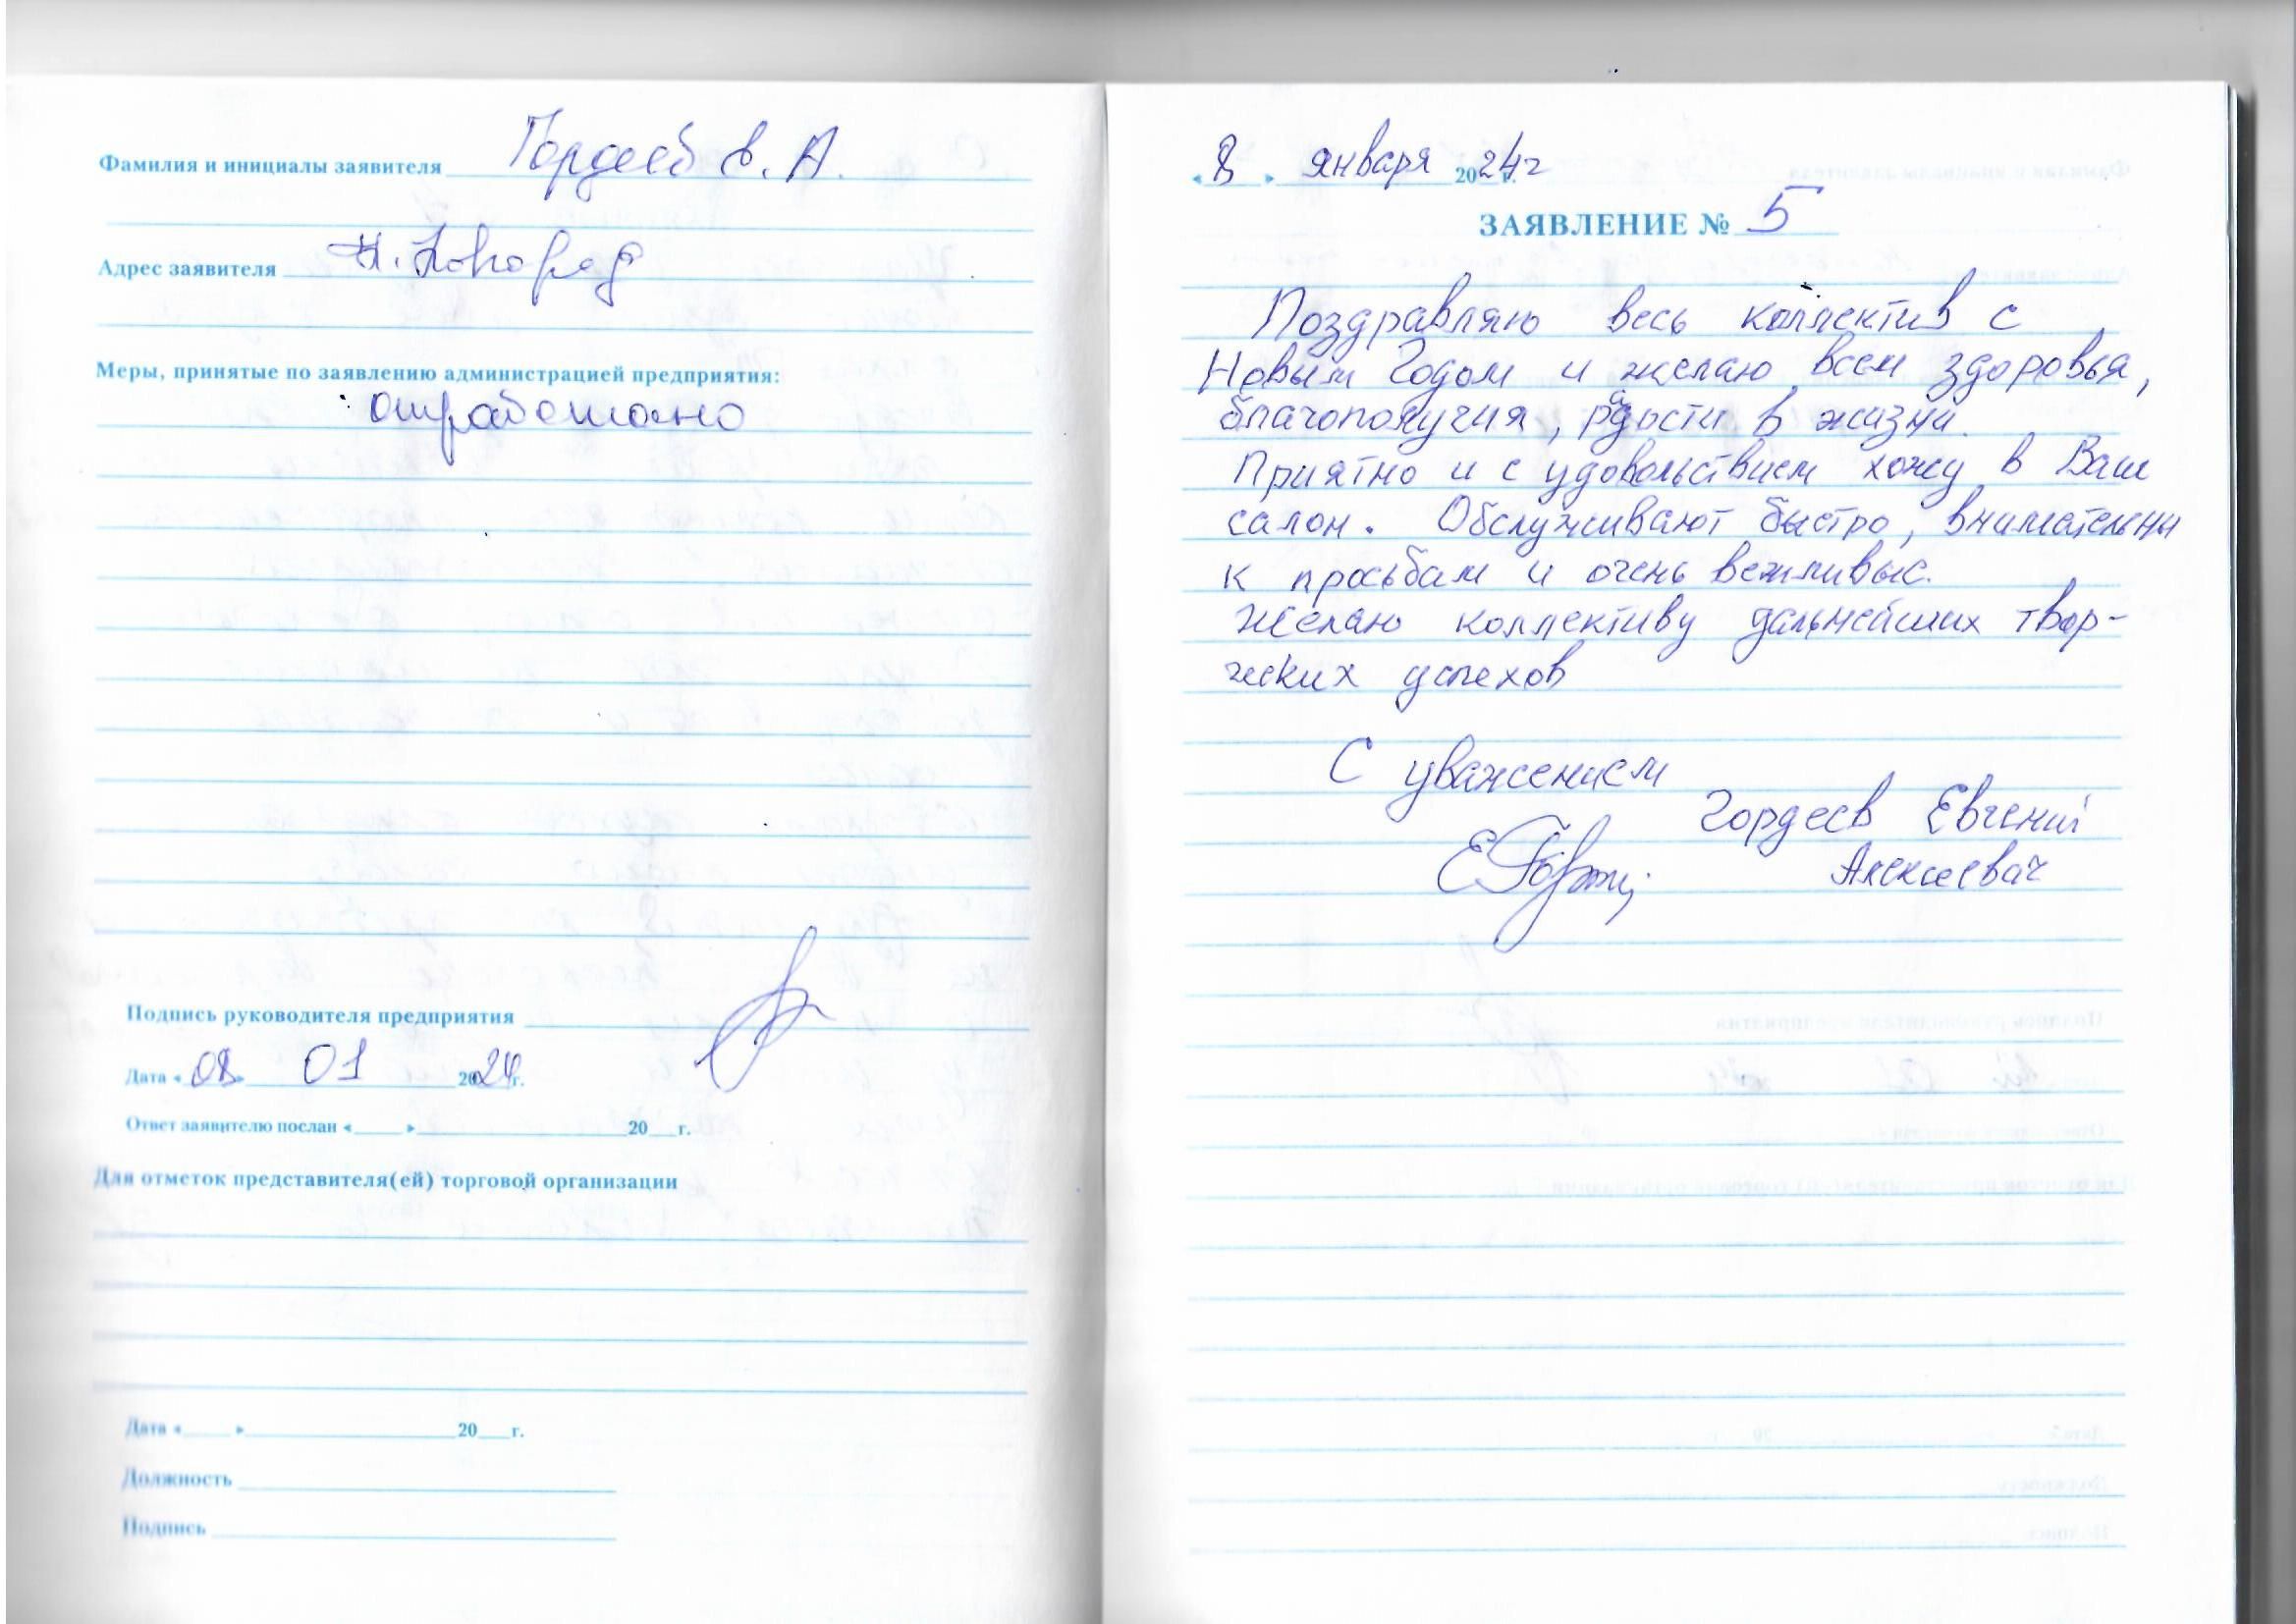 Фамилия и инициалы заявителя Гордеев в. А.
Адрес заявителя Н. Новгород
Меры, принятые по заявлению администрацией предприятия:
отработано
Подпись руководителя предприятия
Дата « 08 » 01 2024 г.
Ответ заявителю послан « » 20 г.
Для отметок представителя(ей) торговой организации
Дата « » 20 г.
Должность
Подпись
« 8 » января 2024 г
ЗАЯВЛЕНИЕ № 5
Поздравляю весь коллектив с
Новым Годом и желаю всем здоровья,
благополучия, радости в жизни.
Приятно и с удовольствием хожу в Ваш
салон. Обслуживают быстро, внимательны
к просьбам и очень вежливые.
Желаю коллективу дальнейших твор-
ческих успехов
С уважением
Гордеев Евгений
Алексеевич